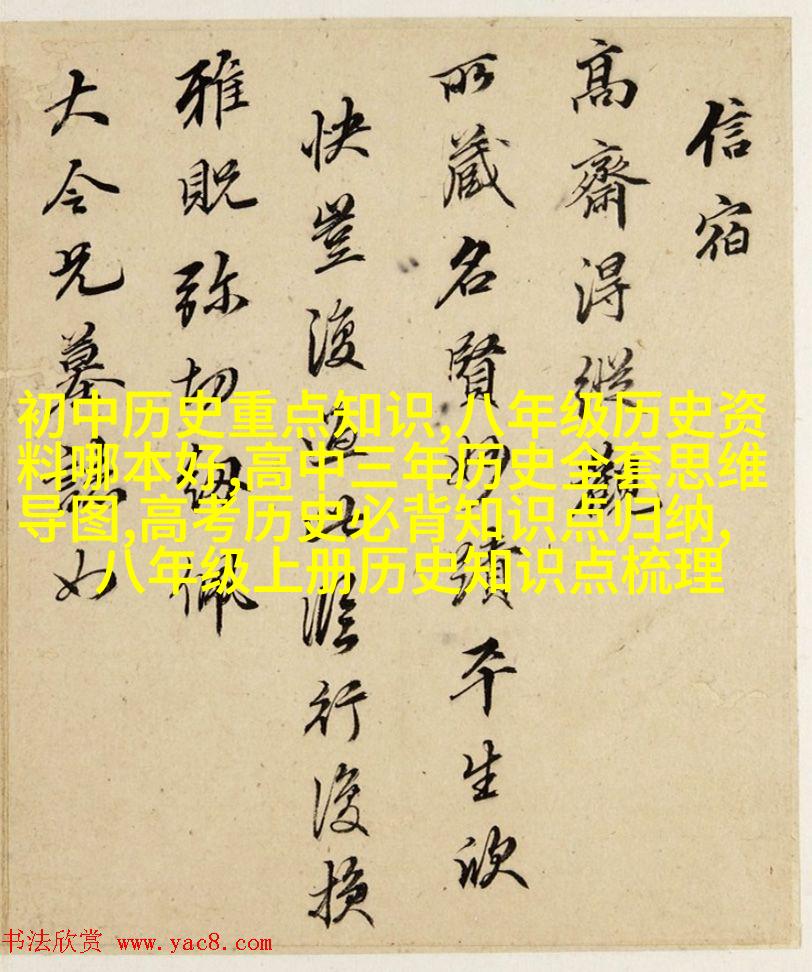 信宿
高齋得縱觀
所藏名賢妙蹟平生欣
快豈復過此臨行復損
雅貺弥切銘佩
大令兄墓誌如
初中历史重点知识,八年级历史资
料哪本好,高中三年历史全套思维
导图,高考历史必背知识点归纳,
八年级上册历史知识点梳理
书法欣赏 www.yac8.com